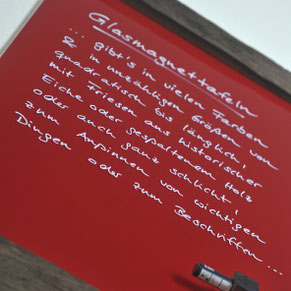 Glasmagnettafeln
... gibt's in vielen Farben
& in unzähligen Größen von
quadratisch bis länglich,
mit Friesen aus historischer
Eiche oder gespaltenem Holz
oder auch ganz schlicht!
zum Anpinnen von wichtigen
Dingen oder zum Beschriften...